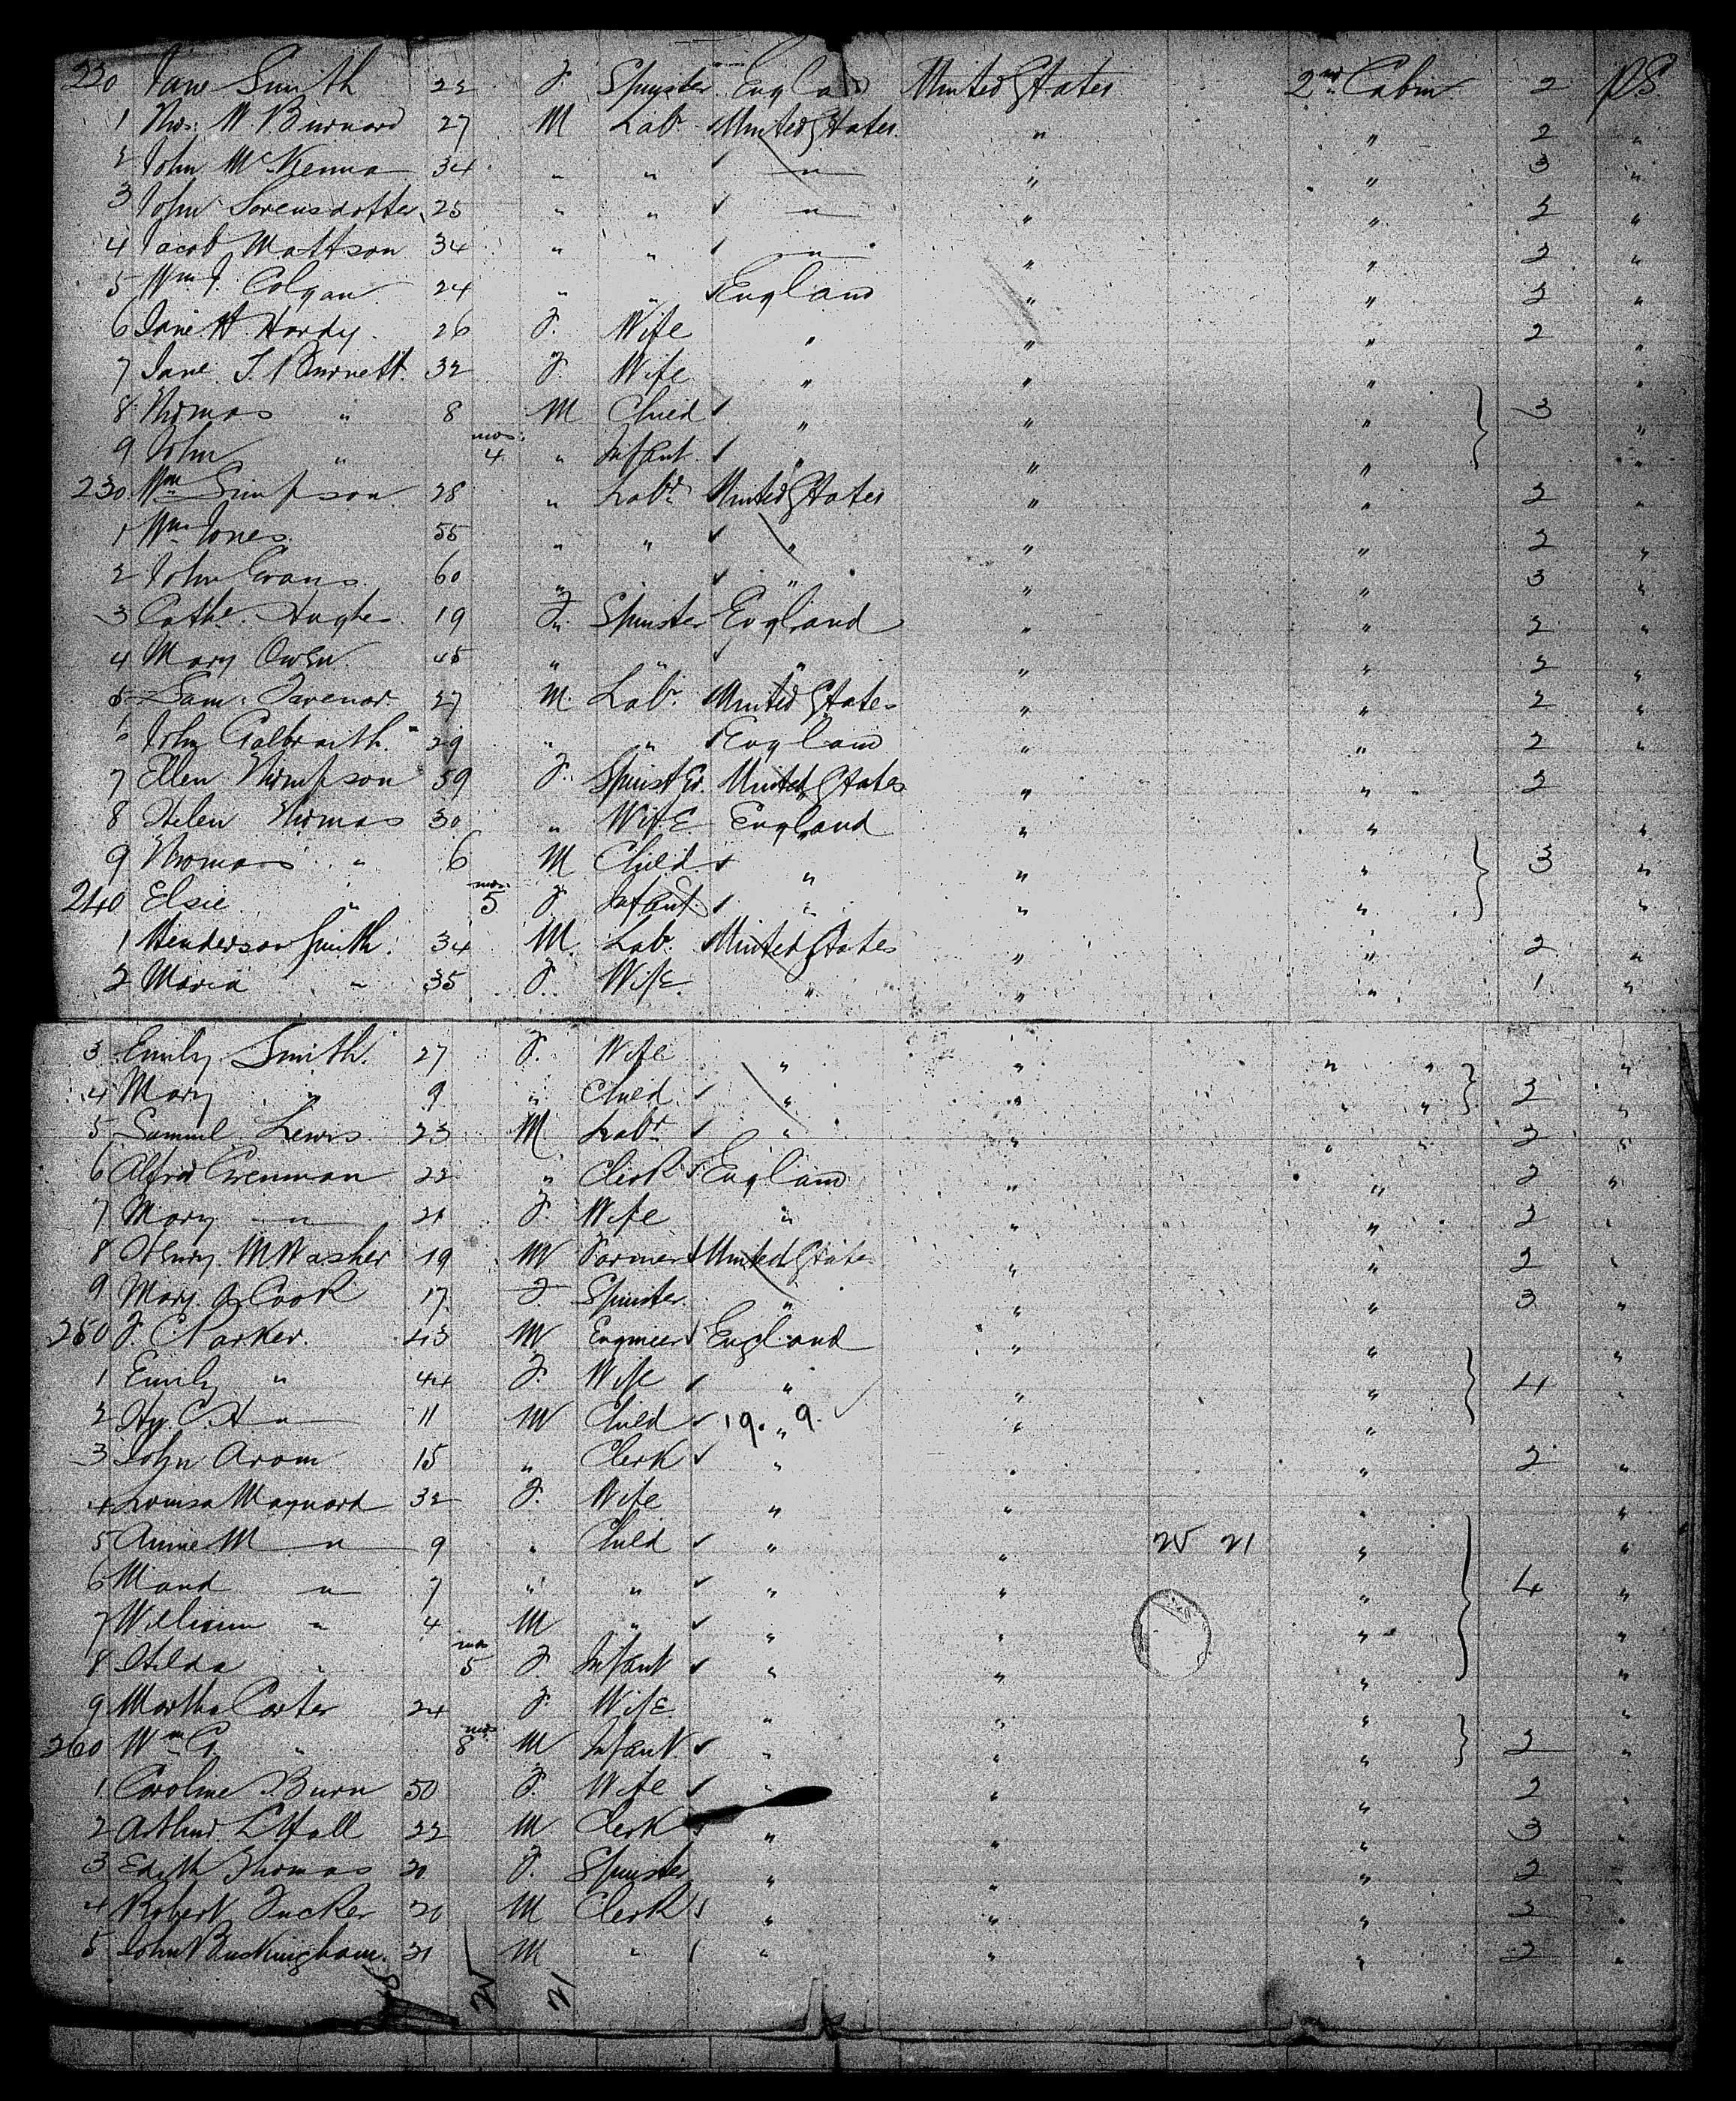 220 Jane Smith 22 F Spinster England United States 2nd Cabin 2 P.S.
1 Thos. W Burnard 27 M Labr United States " " 2 "
2 John McKenna 34 " " " " " 3 "
3 John Sorensdotter 25 " " " " " 2 "
4 Jacob Mattson 34 " " " " " 2 "
5 Wm J. Colgan 24 " " England " " 2 "
6 Jane H. Hardy 26 F. Wife " " " 2 "
7 Jane T. Burnett 32 F. Wife " " " "
8 Thomas " 8 M Child " " " 3 "
9 John " mos. 4 " Infant " " " "
230 Wm Simpson 28 " Labr United States " " 2 "
1 Wm Jones 55 " " " " " 2 "
2 John Evans 60 " " " " 3 "
3 Cathe. Hughes 19 F. Spinster England " " 2 "
4 Mary Owen 45 " " " " " 2 "
5 Sam: Tavenar 27 M Labr United States " " 2 "
6 John Galbraith 29 " " England " " 2 "
7 Ellen Thompson 59 F. Spinster. United States " " 2
8 Helen Thomas 30 " Wife England " " "
9 Thomas " 6 M Child " " " 3 "
240 Elsie " mos. 5 F Infant " " " "
1 Henderson Smith 34 M Labr United States " " 2 "
2 Maria " 35 F. Wife " " " 1 "
3 Emily Smith 27 F. Wife " " " " "
4 Mary " 9 " Child " " " " 2 "
5 Samuel Lewis 23 M Labr " " " " 2 "
6 Alfred 22 " Clerk England " " 2 "
7 Mary " 21 F. Wife " " " 2 "
8 Henry M Washer 19 M Farmer United States " " 2 "
9 Mary A Cook 17 F. Spinster " " " 3 "
250 F. C. Parker. 43 M Engineer England " " "
1 Emily " 44 F. Wife " " " 4 "
2 Hy. C. H " 11 M Child 19. " 9. " "
3 John Arom 15 " Clerk " " " 2 "
4 Louisa Maynard 32 F. Wife " " " "
5 Annie M " 9 " Child " " 21 " "
6 Maud " 7 " " " " " 4 "
7 William " 4 M " " " " "
8 Hilda " mos 5 F. Infant " " " "
9 Martha Carter 24 F. Wife " " " "
260 Wm G " mos. 8 M Infant " " " 2 "
1 Caroline Burn 50 F. Wife " " " 2 "
2 Arthur L Hall 22 M Clerk " " " 3 "
3 Edith Thomas 20 F. Spinster " " " 2 "
4 Robert Tucker 20 M Clerk " " " 2 "
5 John Buckingham 21 M " " " " 2 "
21